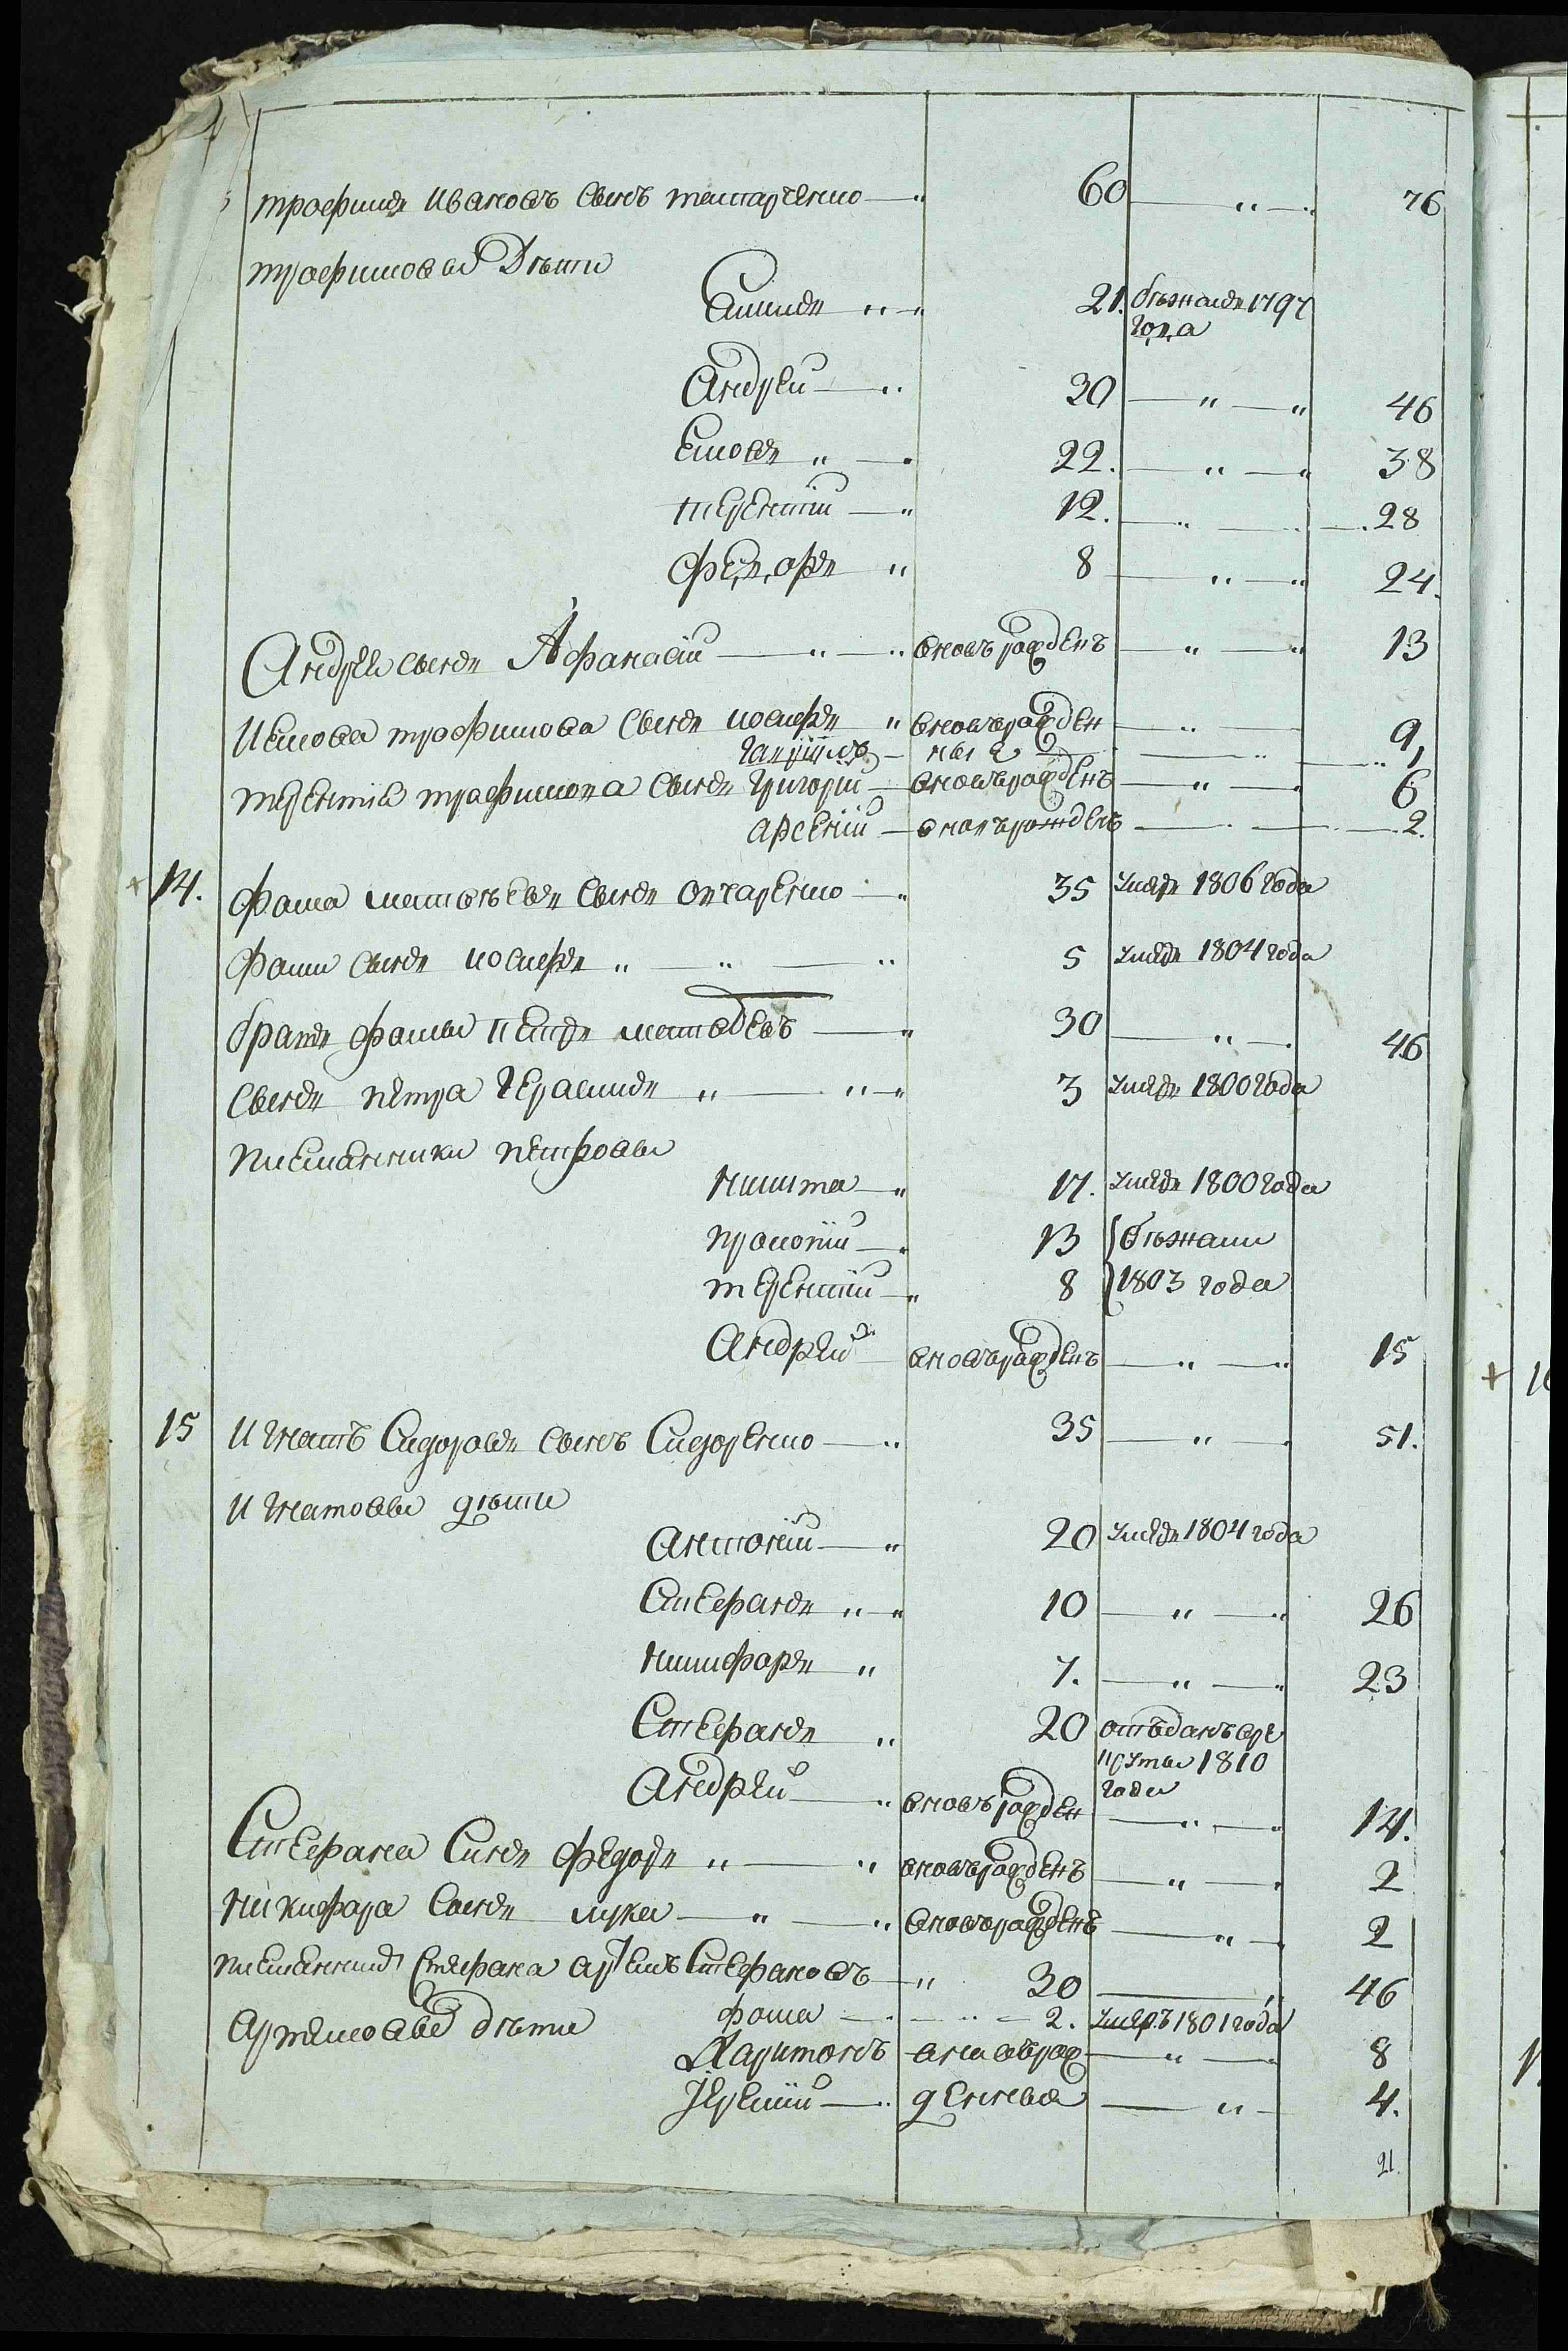 Трофимъ Ивановъ сынъ 60 76
Трофимовы Дѣти
21. бѣжалъ 1797
года
Андрей 30 46
22. 38
Терентій 12. 28
Федоръ 8 24.
Андрея сынъ Афанасій вновьрожденъ 13
Трофимова сынъ иосифъ вновьрожден 9
Терентія трофимова сынъ Григорій вновьрожденъ 6
Арсеній вновьрожденъ 2.
14. Фома матвѣевъ сынъ овчаренко 35 умеръ 1806 года
Фомы сынъ иосифъ 5 умеръ 1804 года
братъ фомы петръ матвѣевъ 30 46
сынъ петра Герасимъ 3 умеръ 1800 года
племянники петровы
Никита 17. умеръ 1800 года
прокопій 13 бѣжали
терентій 8 1803 года
Андрей вновьрожденъ 15
15 Игнатъ Сидоровъ сынъ Сидоренко 35 51.
Игнатовы дѣти
Антоній 20 умеръ 1804 года
Стефанъ 10 26
Никифоръ 7. 23
Стефанъ 20 отъданъ въ ре
круты 1810
года
Андрей вновьрожден 14.
Стефана Синъ федоръ вновьрожденъ 2
Никифора сынъ лука вновьрожденъ 2
племянникъ Стефана артемъ Стефановъ 30 46
Артемовы дѣти фома 2. умеръ 1801 года
Харитонъ вновьрож 8
Іеремій денныя 4.
21.